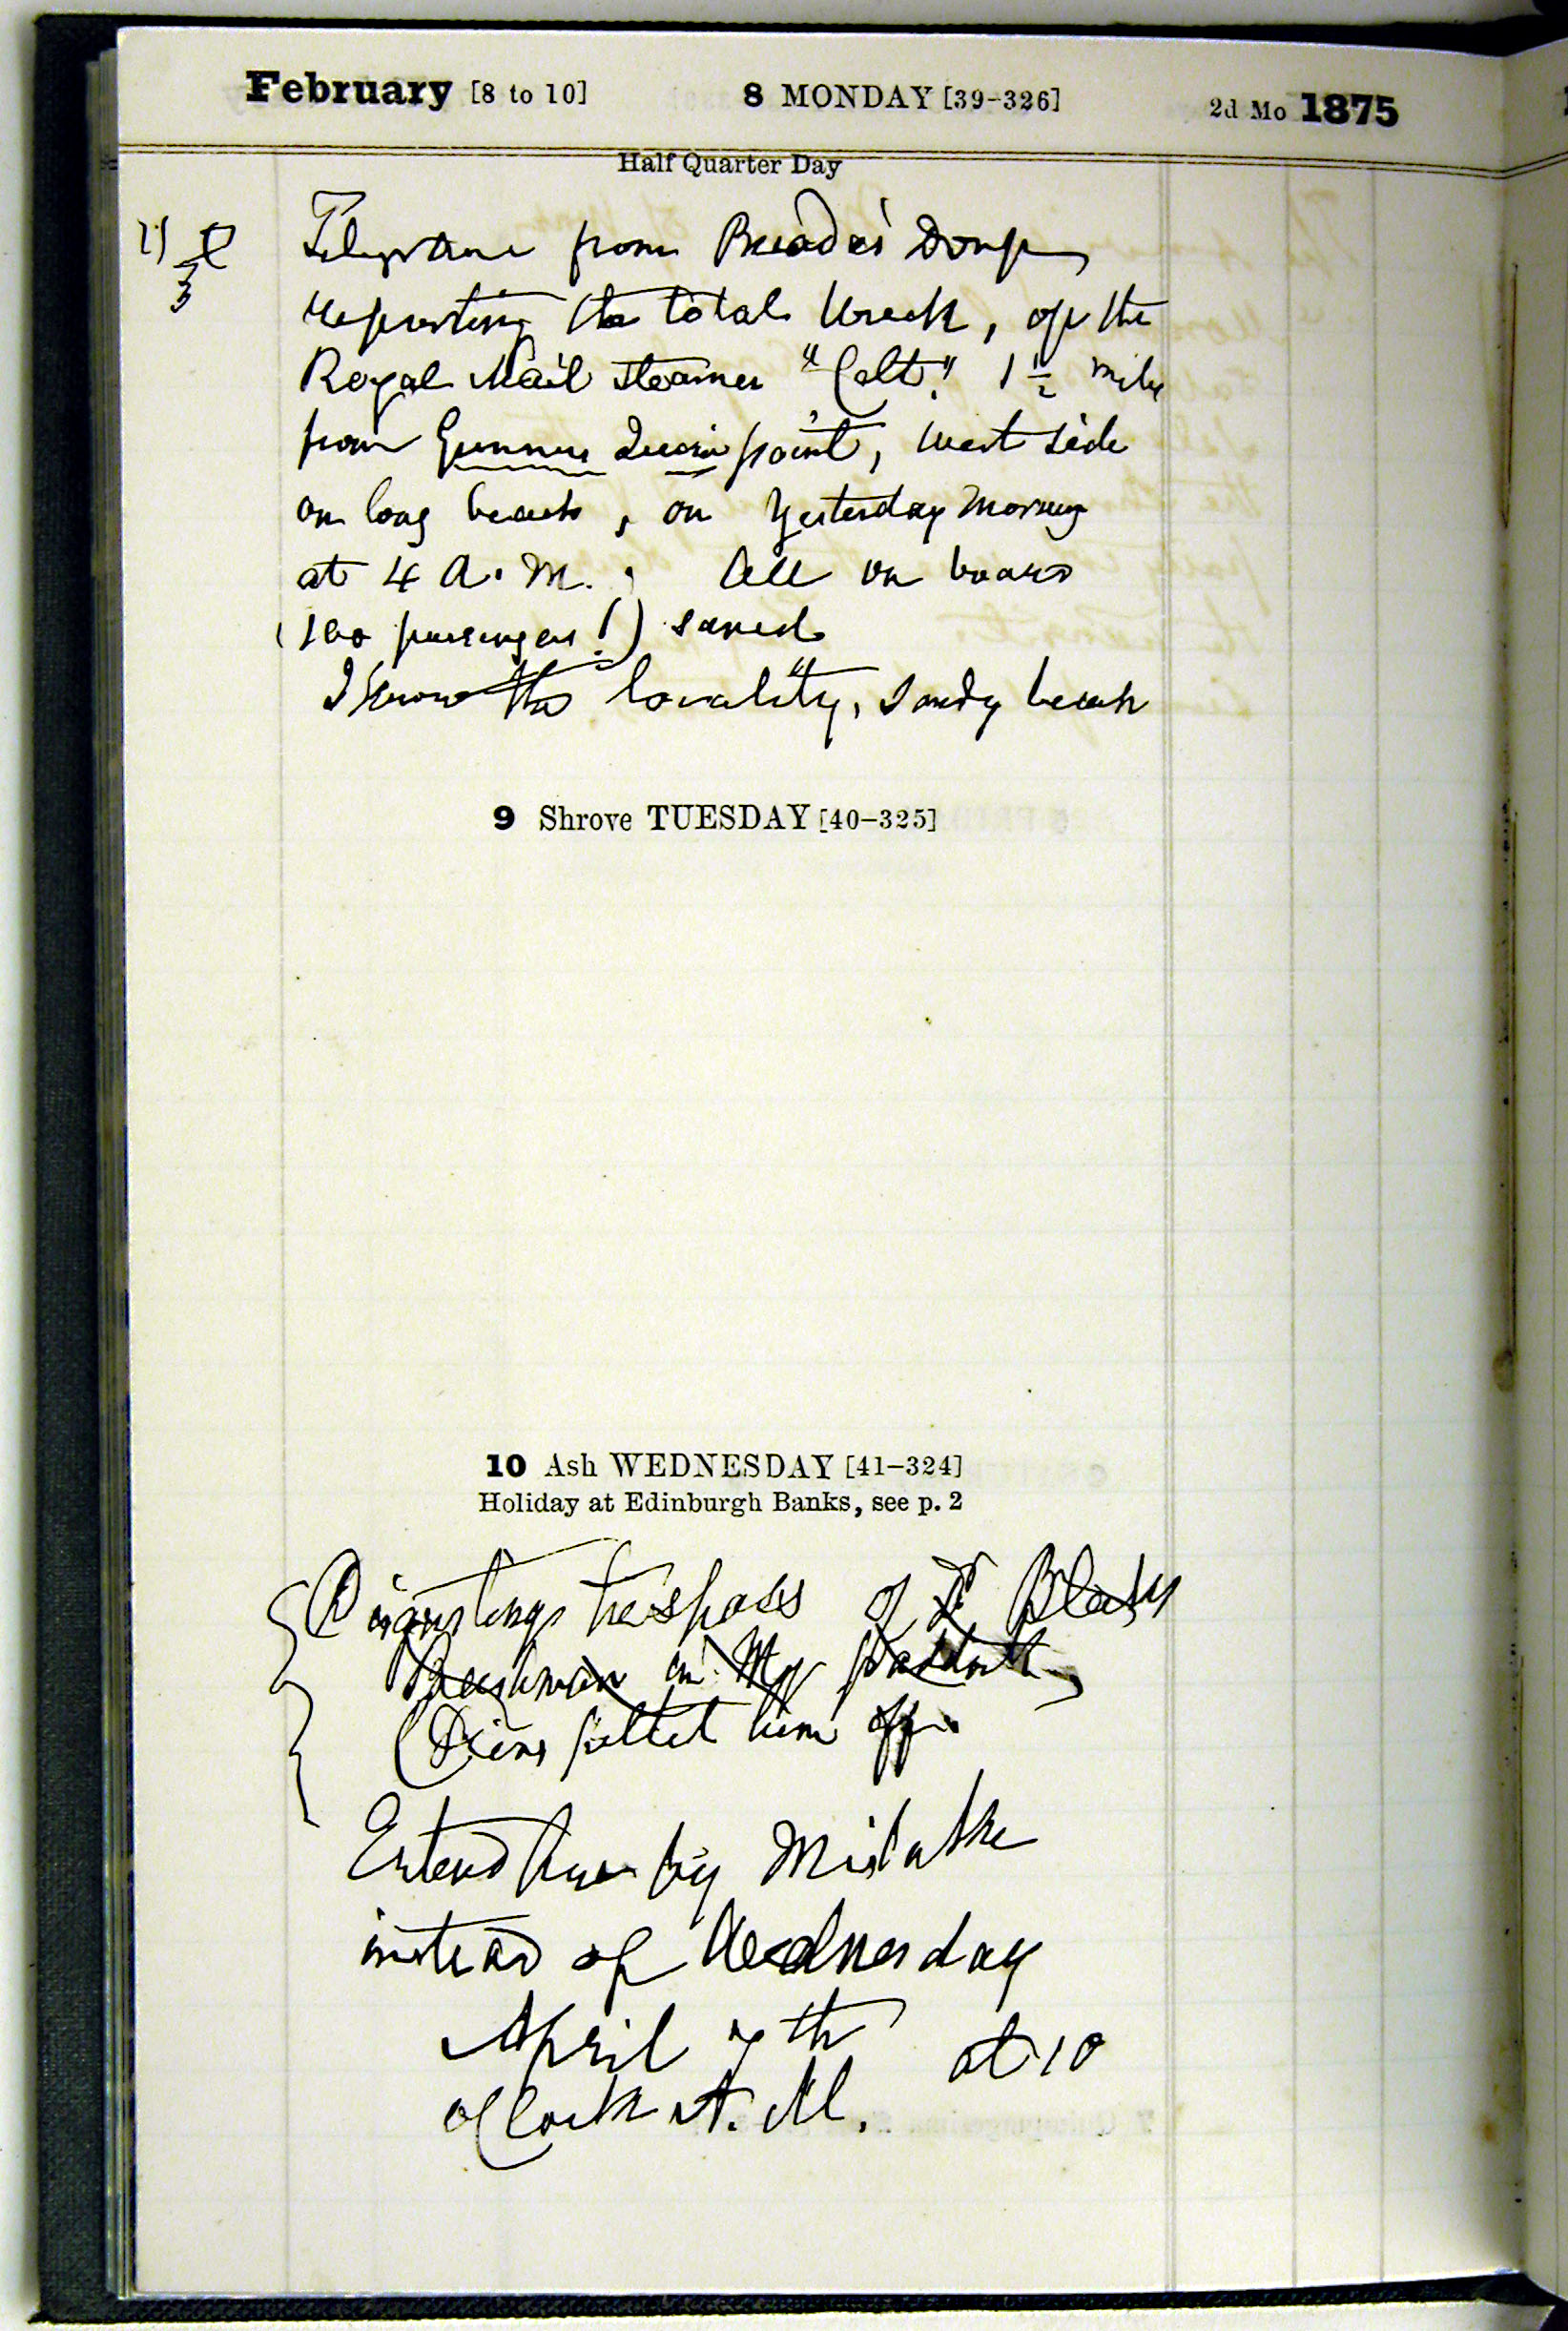 February [8 to 10] 8 MONDAY [39-326] 2d Mo 1875
Half Quarter Day
1)
Telegramme from Breda's Dorp
reporting the total Wreck, of the
Royal Mail Steamer "Celt." 1 1/2 mile
from Gunners Quoin point, West side
on long beach, on Yesterday Morning
at 4 A. M.; All on board
(100 passengers!) saved
I know the locality, sandy beach
9 Shrove TUESDAY [40-325]
10 Ash WEDNESDAY [41-324]
Holiday at Edinburgh Banks, see p. 2
trespass of
Bushman in My paddock,
pelted him off.
Entered here by Mistake
instead of Wednesday
April 7th at 10
oClock A. M.